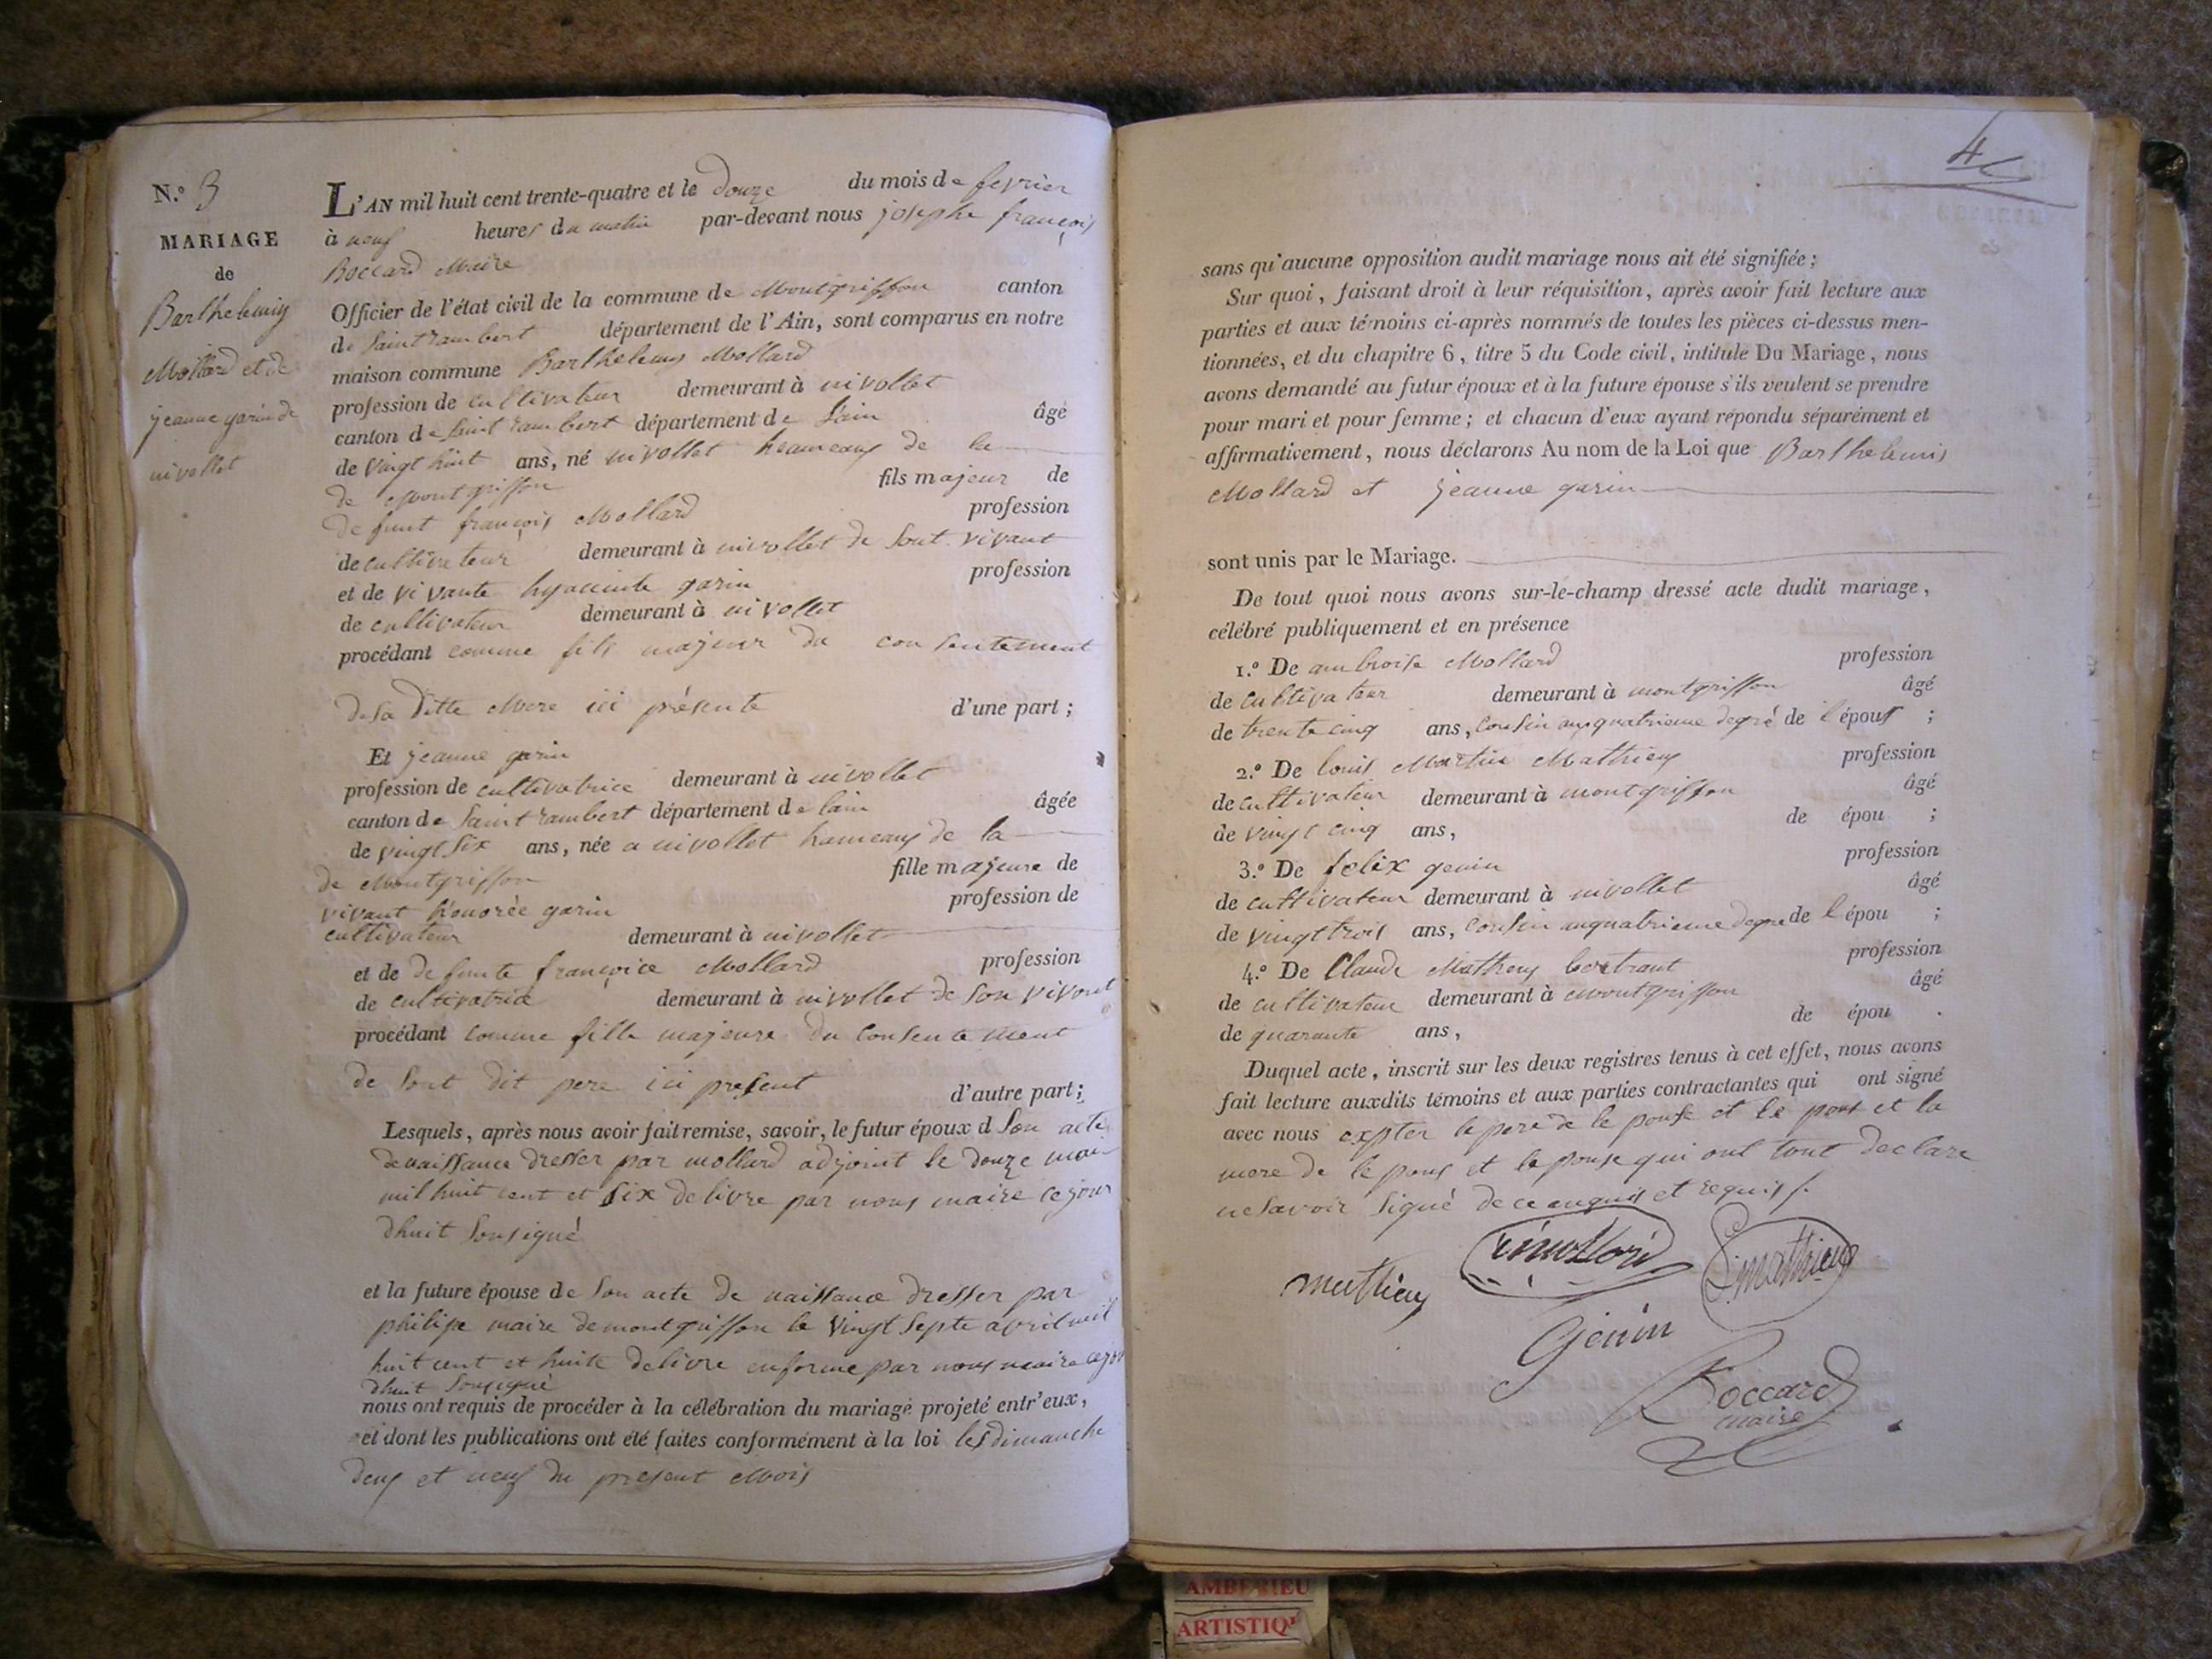 N.º 3
MARIAGE
de
Barthelemy
Mollard et de
jeanne garin de
nivollet
L'AN mil huit cent trente-quatre et le douze du mois de fevrier
à neuf heures du matin par-devant nous josephe françois
Boccard Maire
Officier de l'état civil de la commune de Montgriffon canton
de Saint rambert département de l'Ain, sont comparus en notre
maison commune Barthelemy Mollard
profession de cultivateur demeurant à nivollet
canton de Saint rambert département de Lain âgé
de vingt huit ans, né nivollet heameaux de la
de Montgriffon fils majeur de
defunt françois Mollard profession
de cultivateur demeurant à nivollet de sont vivant
et de vivante hyacinte garin profession
de cultivateur demeurant à nivollet
procédant comme fils majeur du consentement
de sa ditte Mere ici présente d'une part ;
Et jeanne garin
profession de cultivatrice demeurant à nivollet
canton de Saint rambert département de lain âgée
de vingt six ans, née a nivollet hameaux de la
de Montgriffon fille majeure de
vivant honorée garin profession de
cultivateur demeurant à nivollet
et de defunte françoice Mollard profession
de cultivatrice demeurant à nivollet de son vivant
procédant comme fille majeure du consentement
de sont dit pere ici present d'autre part ;
Lesquels, après nous avoir fait remise, savoir, le futur époux d Son acte
de naissance dresser par mollard adjoint le douze mai
mil huit cent et six delivre par nous maire ce jour
dhuit Sousigné
et la future épouse de Son acte de naissance dresser par
philipe maire de montgriffon le vingt septe avril mil
huit cent et huite delivre en forme par nous maire ce jour
dhuit Sousigné
nous ont requis de procéder à la célébration du mariage projeté entr'eux,
et dont les publications ont été faites conformément à la loi les dimanche
deux et neuf du present Mois
4
sans qu'aucune opposition audit mariage nous ait été signifiée ;
Sur quoi, faisant droit à leur réquisition, après avoir fait lecture aux
parties et aux témoins ci-après nommés de toutes les pièces ci-dessus men-
tionnées, et du chapitre 6, titre 5 du Code civil, intitule Du Mariage, nous
avons demandé au futur époux et à la future épouse s'ils veulent se prendre
pour mari et pour femme ; et chacun d'eux ayant répondu séparément et
affirmativement, nous déclarons Au nom de la Loi que Barthelemis
Mollard et jeanne garin
sont unis par le Mariage.
De tout quoi nous avons sur-le-champ dressé acte dudit mariage,
célébré publiquement et en présence
1.º De ambroise Mollard profession
de Cultivateur demeurant à montgriffon âgé
de trente cinq ans, cousin au quatrieme degré de l'époux ;
2.º De louis Martin Mathieu profession
de cultivateur demeurant à montgriffon âgé
de vingt cinq ans, de épou ;
3.º De felix genin profession
de cultivateur demeurant à nivollet âgé
de vingt trois ans, Cousin au quatrieme degre de l'épou ;
4.º De Claude Mathieu bertrant profession
de cultivateur demeurant à Montgriffon âgé
de quarante ans, de épou .
Duquel acte, inscrit sur les deux registres tenus à cet effet, nous avons
fait lecture auxdits témoins et aux parties contractantes qui ont signé
avec nous expter le pere de le pouse et le pous et la
mere de le pous et le pouse qui ont tout declare
ne savoir signé de ce enquis et requis f.
mathieu
Mollard
L. mathieu
Genin
Boccard
maire
AMBERIEU
ARTISTIQ